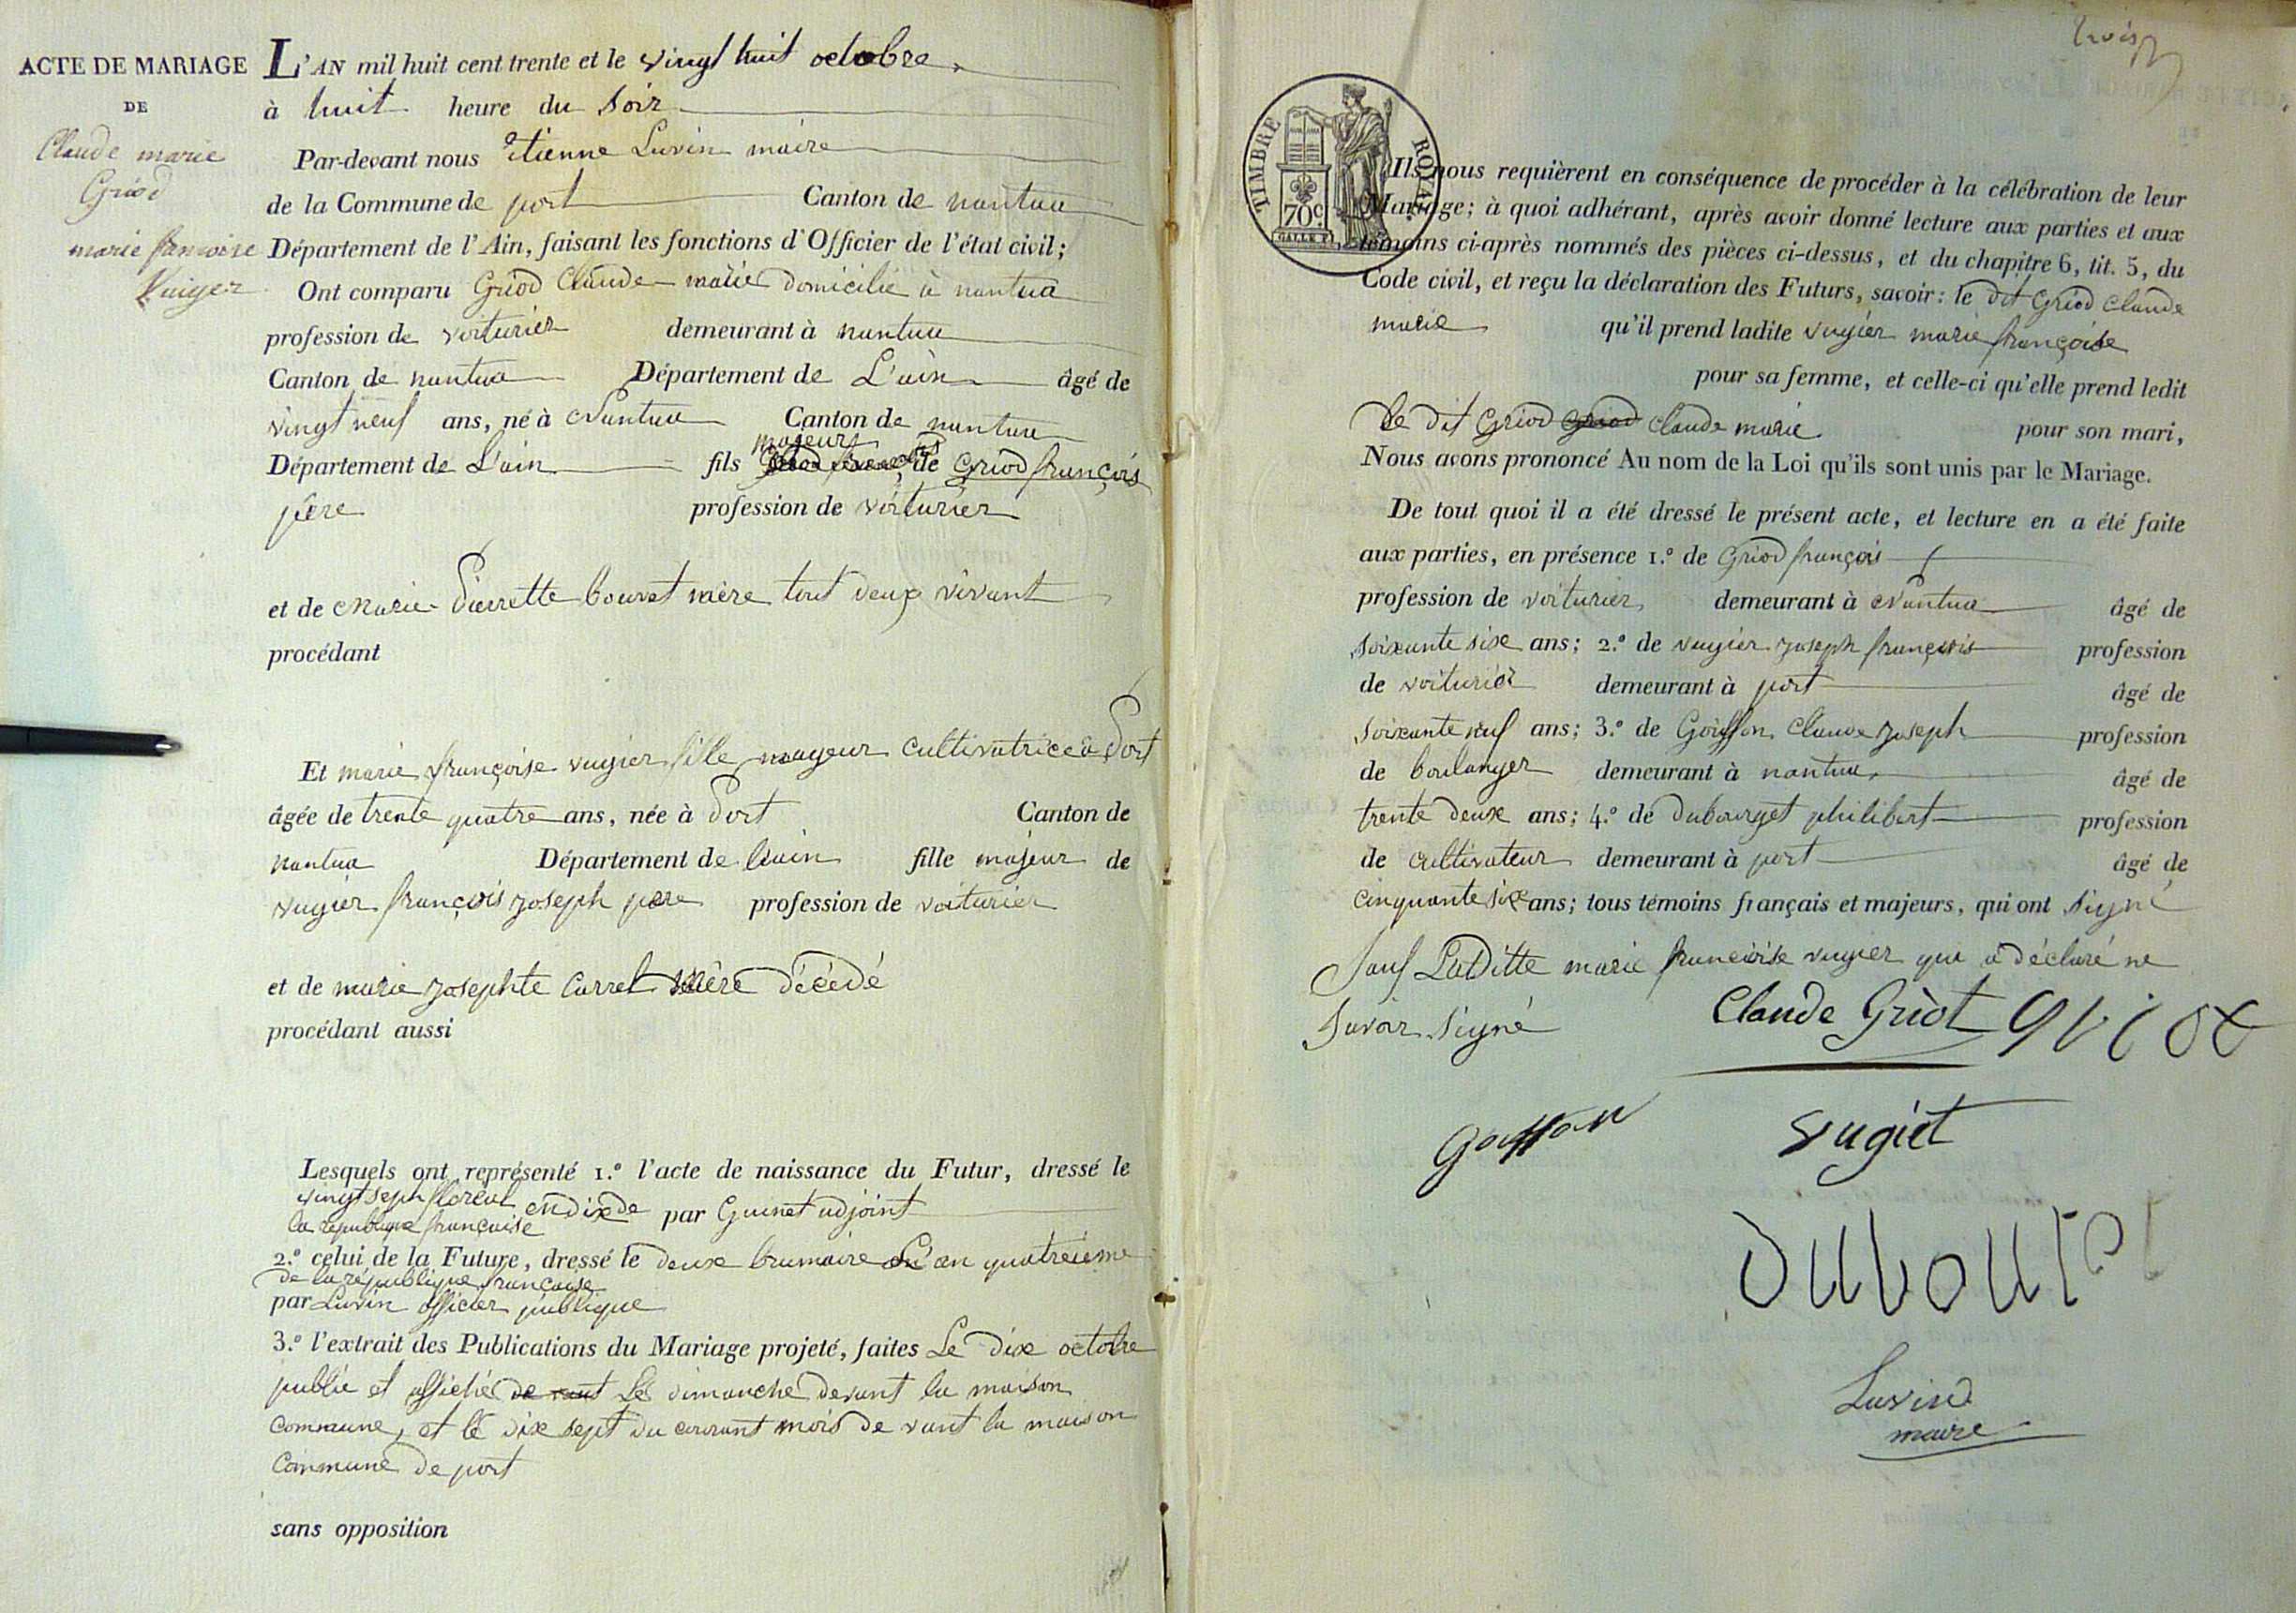 ACTE DE MARIAGE
DE
Claude marie
Griod
marie francoise
Vuiger
L'AN mil huit cent trente et le vingt huit octobre
à huit heure du soir
Par-devant nous etienne Luvin maire
de la Commune de port Canton de nantua
Département de l'Ain, faisant les fonctions d'Officier de l'état civil;
Ont comparu Griod Claude marie domicilié à nantua
profession de voiturier demeurant à nantua
Canton de nantua Département de L'ain âgé de
vingt neuf ans, né à Nantua Canton de nantua
majeur
Département de L'ain fils de Griod françois
père profession de voiturier
et de Marie Pierrette bouvet mère tout deux vivant
procédant
Et marie françoise vugier fille mayeur cultivatrice à Port
âgée de trente quatre ans, née à Port Canton de
nantua Département de l'ain fille majeur de
vugier françois joseph pere profession de voiturier
et de marie josephte Carret mère décédé
procédant aussi
Lesquels ont représenté 1.º l'acte de naissance du Futur, dressé le
vingt seph floréal en dix de par Guinet adjoint
la republique française
2.º celui de la Future, dressé le deux brumaire L'an quatreieme
de la république française
par Luvin officier publique
3.º l'extrait des Publications du Mariage projeté, faites Le dix octobre
publié et affiché de vant Le dimanche devant la maison
commune, et le dix sept du courant mois de vant la maison
commune de port
sans opposition
trois
TIMBRE ROYAL
70c
Ils nous requièrent en conséquence de procéder à la célébration de leur
Mariage; à quoi adhérant, après avoir donné lecture aux parties et aux
témoins ci-après nommés des pièces ci-dessus, et du chapitre 6, tit. 5, du
Code civil, et reçu la déclaration des Futurs, savoir: le dit Griod Claude
marie qu'il prend ladite vugier marie françoise
pour sa femme, et celle-ci qu'elle prend ledit
Le dit Griod Griod Claude marie pour son mari,
Nous avons prononcé Au nom de la Loi qu'ils sont unis par le Mariage.
De tout quoi il a été dressé le présent acte, et lecture en a été faite
aux parties, en présence 1.º de Griod françois
profession de voiturier demeurant à Nantua âgé de
soixante sixe ans; 2.º de vugier joseph françois profession
de voiturier demeurant à port âgé de
soixante neuf ans; 3.º de Goiffon Claude joseph profession
de boulanger demeurant à nantua âgé de
trente deux ans; 4.º de Dubourget philibert profession
de cultivateur demeurant à port âgé de
cinquante six ans; tous témoins français et majeurs, qui ont signé
Sauf Laditte marie francoise vugier qui a déclaré ne
savoir signé
Claude Griot
goiffon
vugiet
Luvin
maire